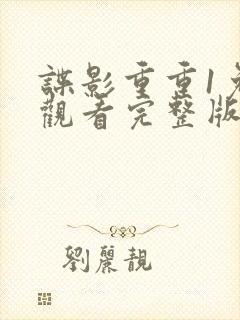 諜影重重1
觀看完整版
劉麗靚